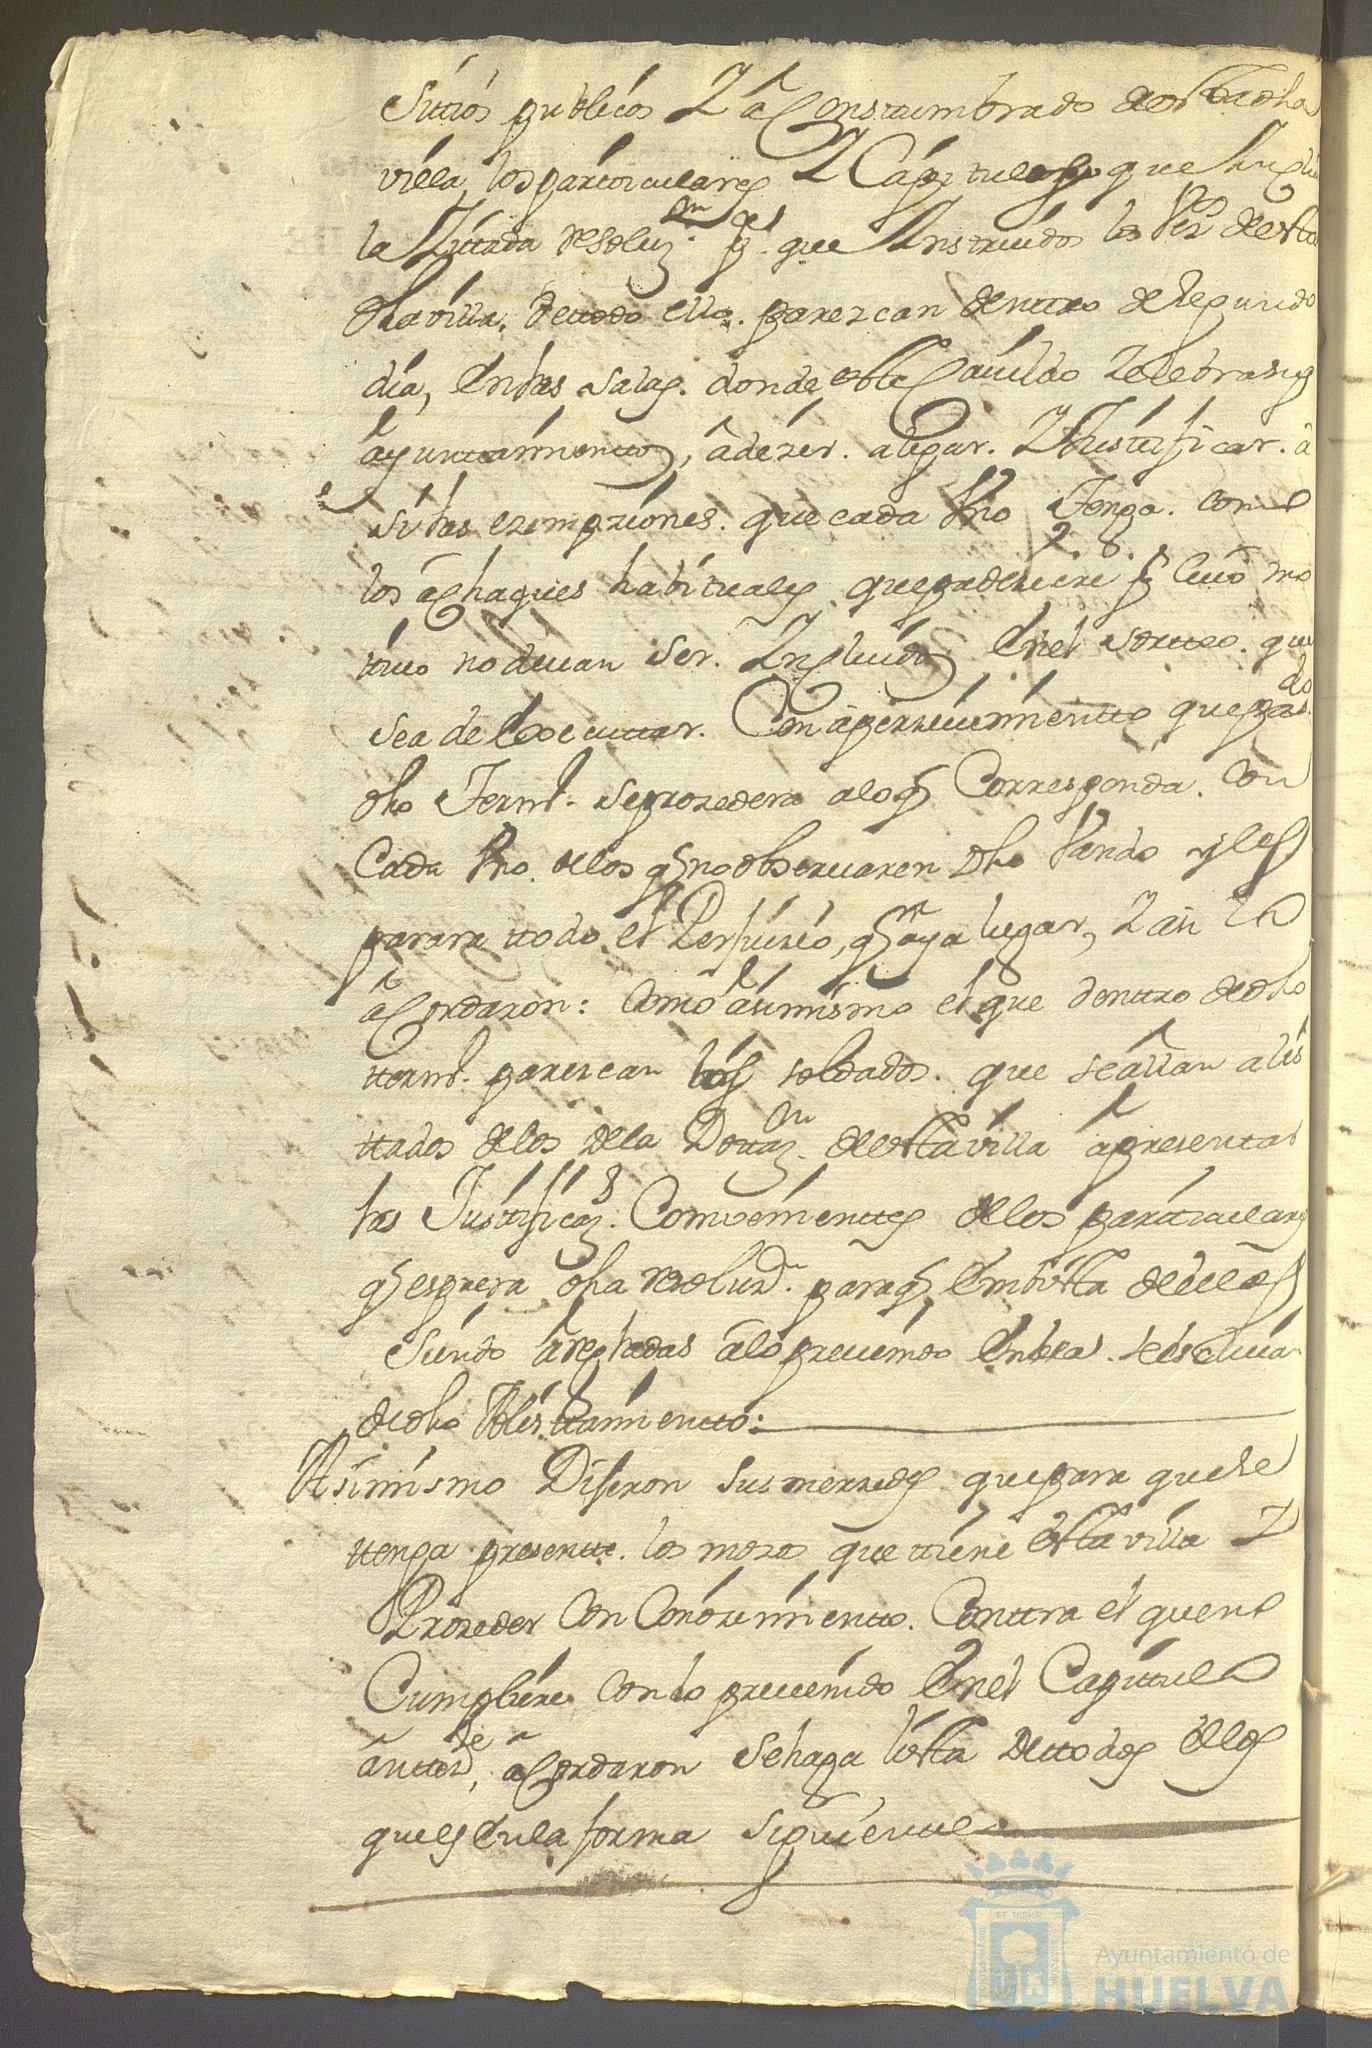 Sitios publicos Y aConstumbrado de esta dha
villa, los particulares Y Capitulos que Incluie
la Zitada resoluz.on p.a que Instruidos los Vez.os de esta
dha villa. de ttodo ello. parezcan denttro de segundo
dia, En las salas. donde este Cauildo Zelebra sus
ayunttamienttos, a dezir. alegar. Y Justificar. a
si las exempziones. que cada Vno Tenga. como
los achaques habituales que padeziere p.r Cuio mo
tiuo no deuan ser. Yncluidos En el sortteo. que
sea de Executtar. Con aperzeuimientto que pasado
dho Termo. se prozedera a lo q Corresponda. Con
Cada Vno. de los q no obseruaren dho Vando y les
parara ttodo el Perjuizio, q aya lugar, Y asi lo
aCordaron: Como asimismo el que dentro de dho
ttermo. parezcan los soldados. que se allan alis
ttados de los de la Dottaz.on de esta villa a presentar
las Justificaz.s Comvenienttes de los particulares
q espresa dha resoluz.n para q En vista de ellas
Siendo aReghladas a lo preuenido En ella. se les Excluia
de dho Alisttamientto:
Asimismo Dijeron sus merzedes que para que se
ttenga presentte. los mozos que ttiene esta villa Y
Prozeder Con Conozimientto. Conttra el que no
Cumpliere con lo preuenido En el Capitulo
antted.te, aCordaron se haga lista de ttodos ellos
que es En la forma siguientte
Ayuntamiento de
HUELVA